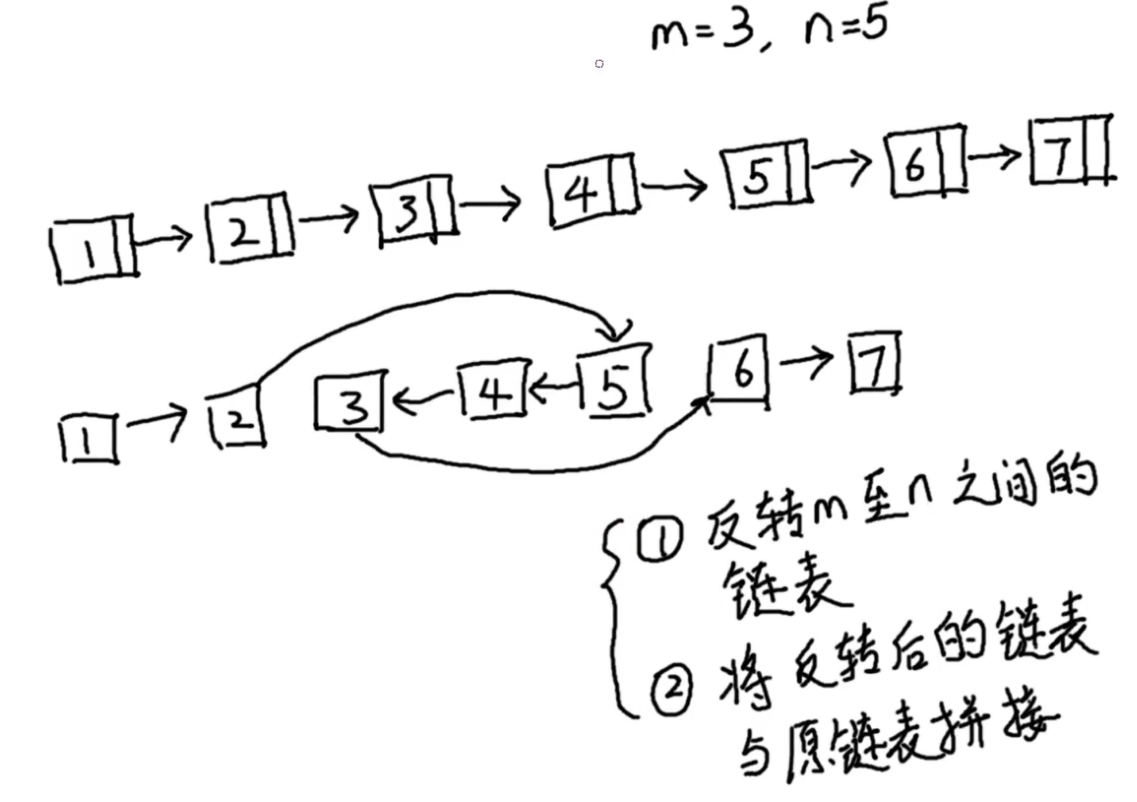 m=3, n=5
1 → 2 → 3 → 4 → 5 → 6 → 7
1 → 2 3 ← 4 ← 5 6 → 7
① 反转m至n之间的
链表
② 将反转后的链表
与原链表拼接